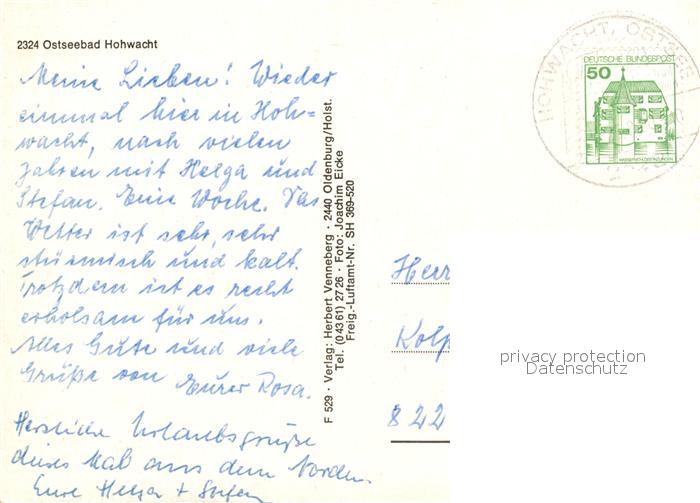 2324 Ostseebad Hohwacht
Meine Lieben! Wieder
einmal hier in Hoh=
wacht, nach vielen
Jahren mit Helga und
Stefan. Eine Woche. Das
Wetter ist sehr, sehr
stürmisch und kalt.
Trotzdem ist es recht
erholsam für uns.
Alles Gute und viele
Grüße von Eurer Rosa.
Herzliche Urlaubsgrüße
dieses Mal aus dem Norden.
Eure Helga + Stefan
F 529 · Verlag: Herbert Venneberg · 2440 Oldenburg/Holst.
Tel. (0 43 61) 27 26 · Foto: Joachim Eicke
Freig.-Luftamt-Nr. SH 369-520
HOHWACHT, OSTSEE
DEUTSCHE BUNDESPOST
50
WASSERSCHLOSS INZLINGEN
Herr
Kolp
822
privacy protection
Datenschutz